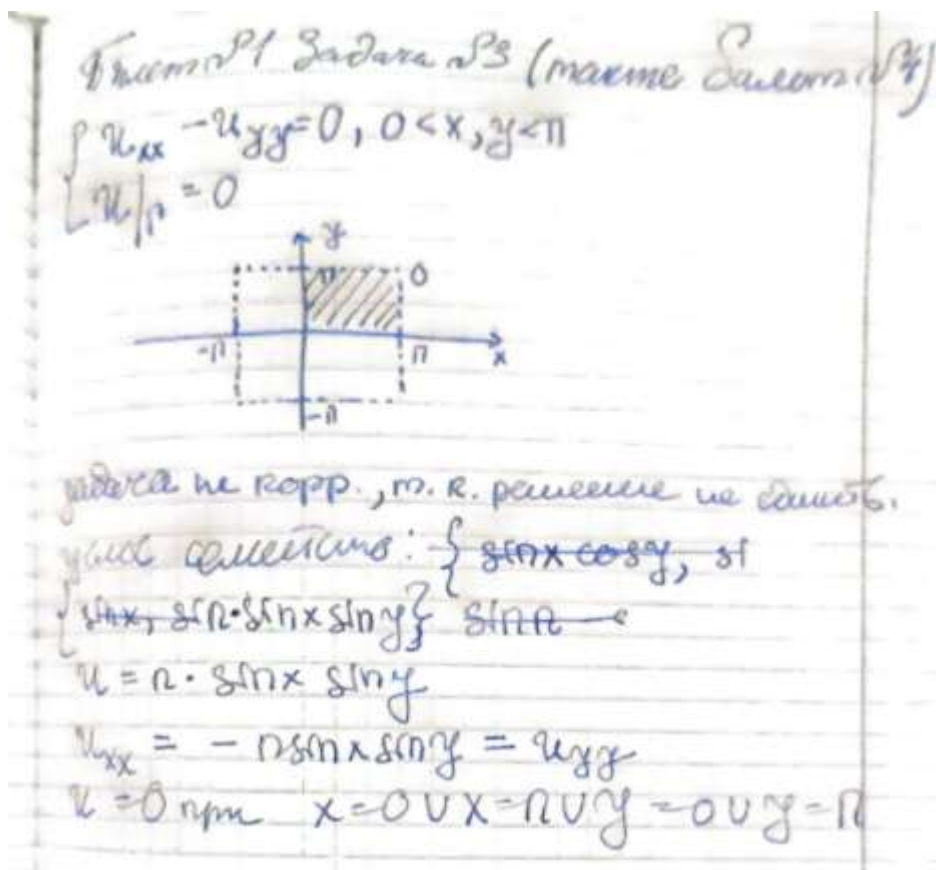 Билет №1 Задача №3 (также билет №4)
{ u_xx - u_yy = 0, 0 < x, y < π
u|_Γ = 0
y
π 0
-π π x
-π
задача не корр., т.к. решение не единств.
семейство: { sinx cosy, si
{ sinx, sin·sinx siny } sinn
u = n · sinx siny
u_xx = - n sinx siny = u_yy
u = 0 при x = 0 ∪ x = π ∪ y = 0 ∪ y = π